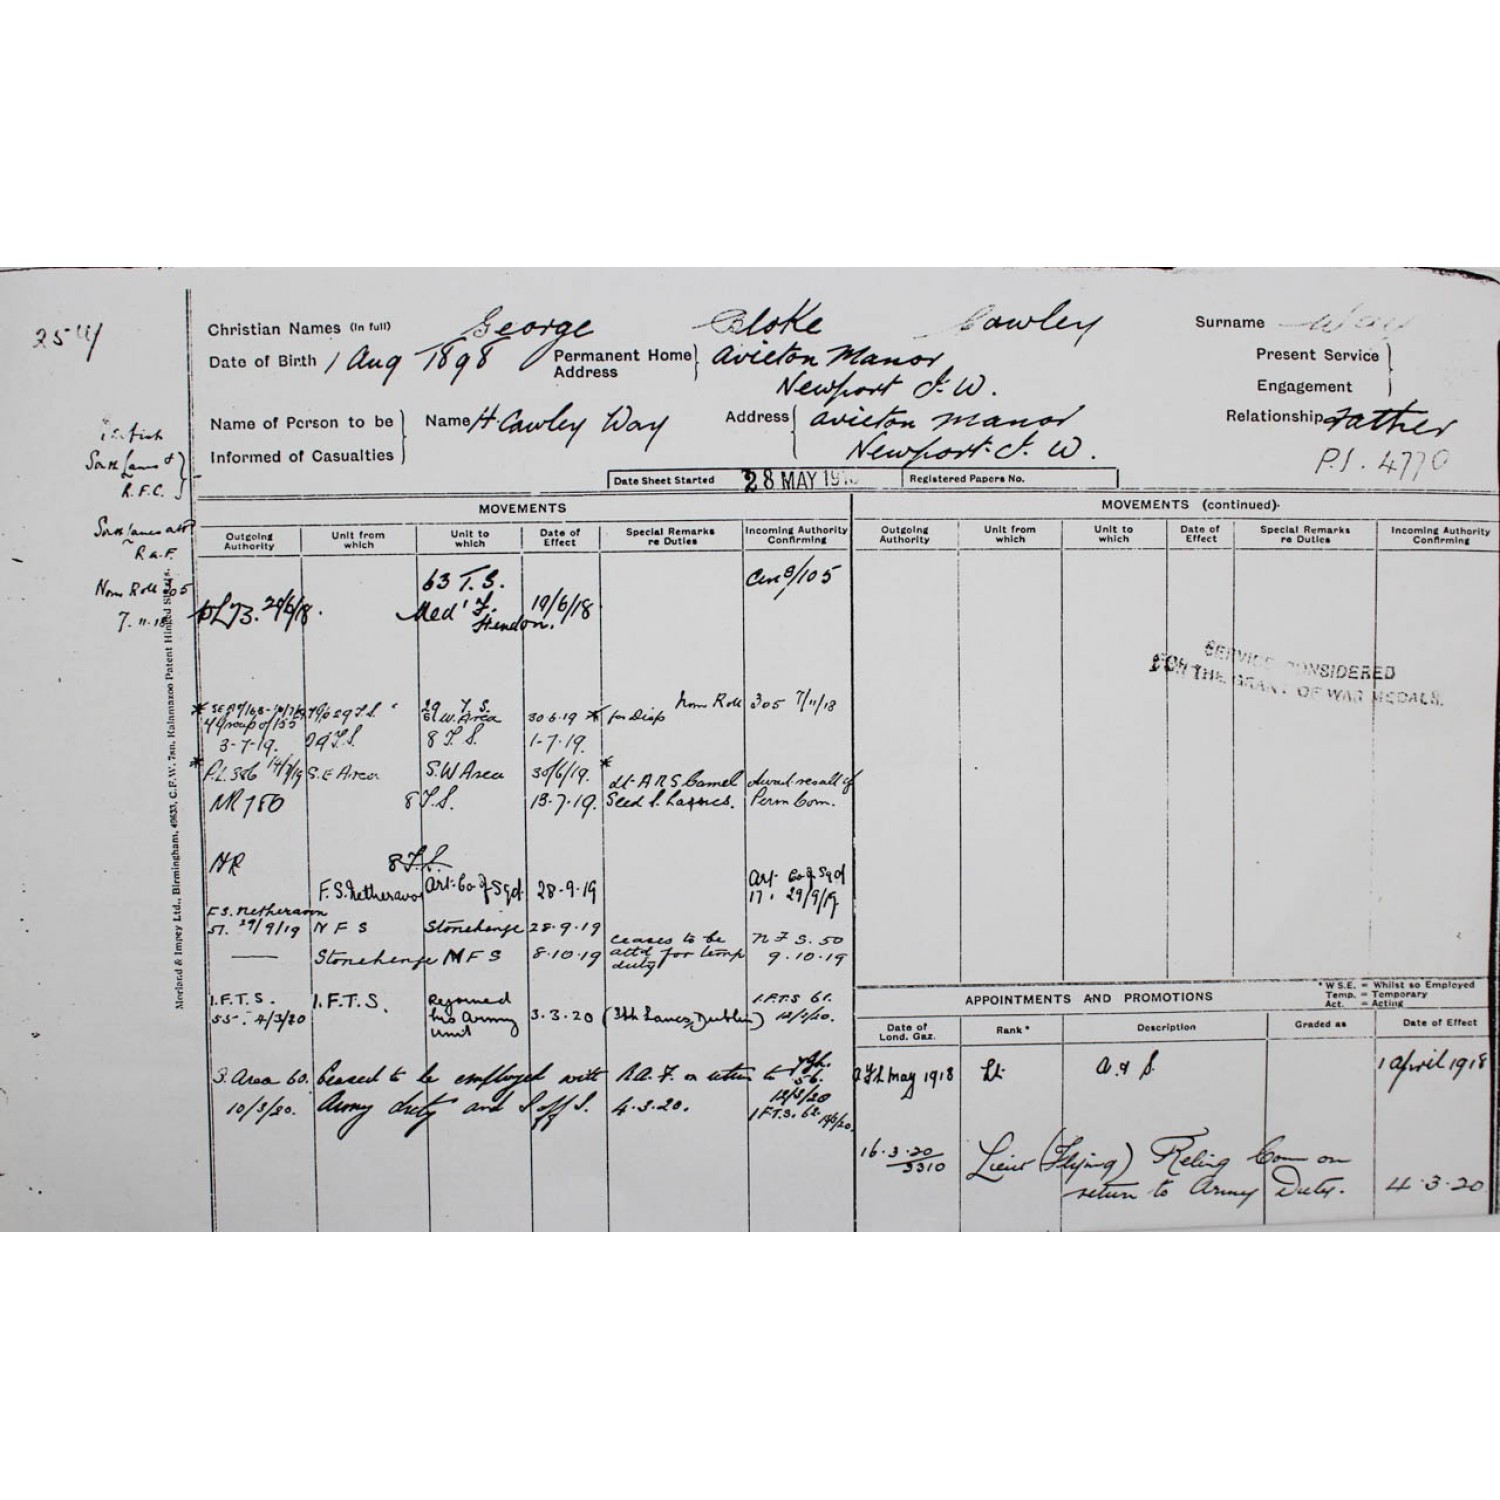 25 W/
Christian Names (In full) George Bloke Cawley Surname Way
Date of Birth 1 Aug 1898 Permanent Home Address Avicton Manor Newport I. W.
Present Service
Engagement
Name of Person to be Informed of Casualties Name H. Cawley Way Address Avicton Manor Newport. I. W. Relationship Father
P.I. 4770
R.F.C.
R.A.F.
Nom Roll 305
7.11.18
Date Sheet Started 28 MAY 191 Registered Papers No.
MOVEMENTS
MOVEMENTS (continued)
Outgoing Authority Unit from which Unit to which Date of Effect Special Remarks re Duties Incoming Authority Confirming
Outgoing Authority Unit from which Unit to which Date of Effect Special Remarks re Duties Incoming Authority Confirming
63 T.S.
PL73. 29/6/18. Med' F. Hendon. 19/6/18
SERVICE CONSIDERED
FOR THE GRANT OF WAR MEDALS.
Nom Roll 305 7/11/18
4 Group of 155 S.W. Area 30.6.19 * for Disp
3-7-19. 29 T.S. 8 T.S. 1-7-19.
* P.L. 386 14/7/19 S.E Area S.W Area 30/6/19. *
NR 780 8 T.S. 13.7.19. Perm Com.
NR 8 T.S.
F.S. Netheravon Art. Co of Sqd 28-9-19 Art. Co of Sqd 17. 29/9/19.
F.S. Netheravon
57. 29/9/19 N F S Stonehenge 28.9.19
Stonehenge N F S 8.10.19 ceases to be attd for temp duty N F S. 50 9.10.19
I.F.T.S. 55. 4/3/20 I.F.T.S. Rejoined his Army unit 3.3.20 (Dublin) I.F.T.S 61. 12/3/20.
S. Area 60. 10/3/20. Ceased to be employed with R.A.F. on return to Army duty and S. off S. 4.3.20.
12/3/20
I.F.T.S. 62.
* W.S.E. = Whilst so Employed
Temp. = Temporary
Act. = Acting
APPOINTMENTS AND PROMOTIONS
Date of Lond. Gaz. Rank * Description Graded as Date of Effect
May 1918 Lt. A. & S. 1 April 1918
16.3.20 / 3310 Lieut (Flying) Relinq Com on return to Army Duty. 4.3.20
Morland & Impey Ltd., Birmingham, 49633, C.F.W. 7sn. Kalamazoo Patent Hinged Sheets.